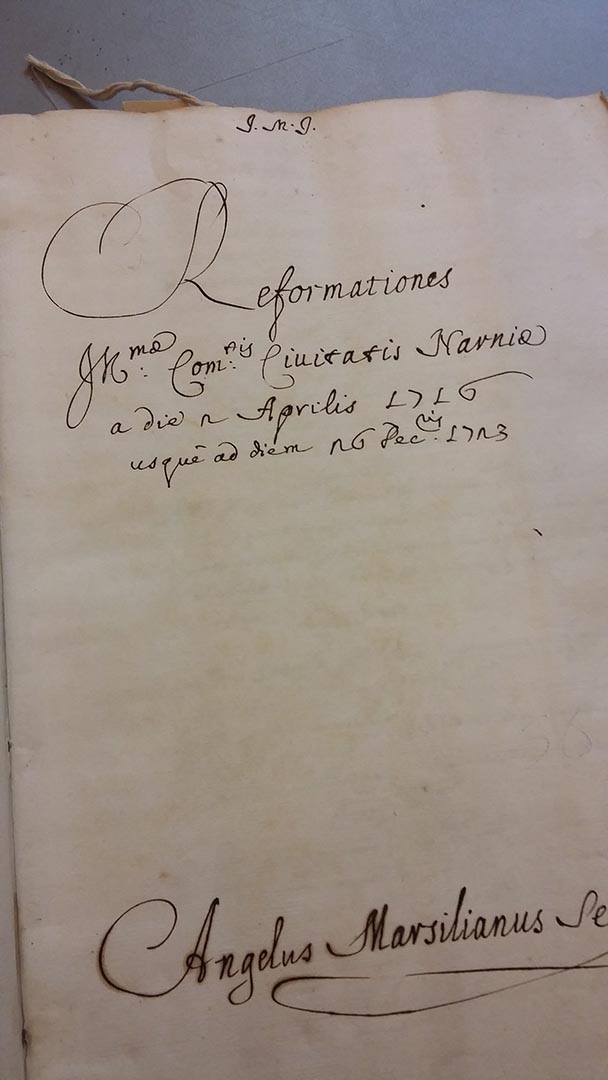 J. M. J.
Reformationes
Ill.mæ Com.tis Ciuitatis Narniæ
a die 2 Aprilis 1716
usquè ad diem 26 Dec.ris 1723
Angelus Marsilianus Se